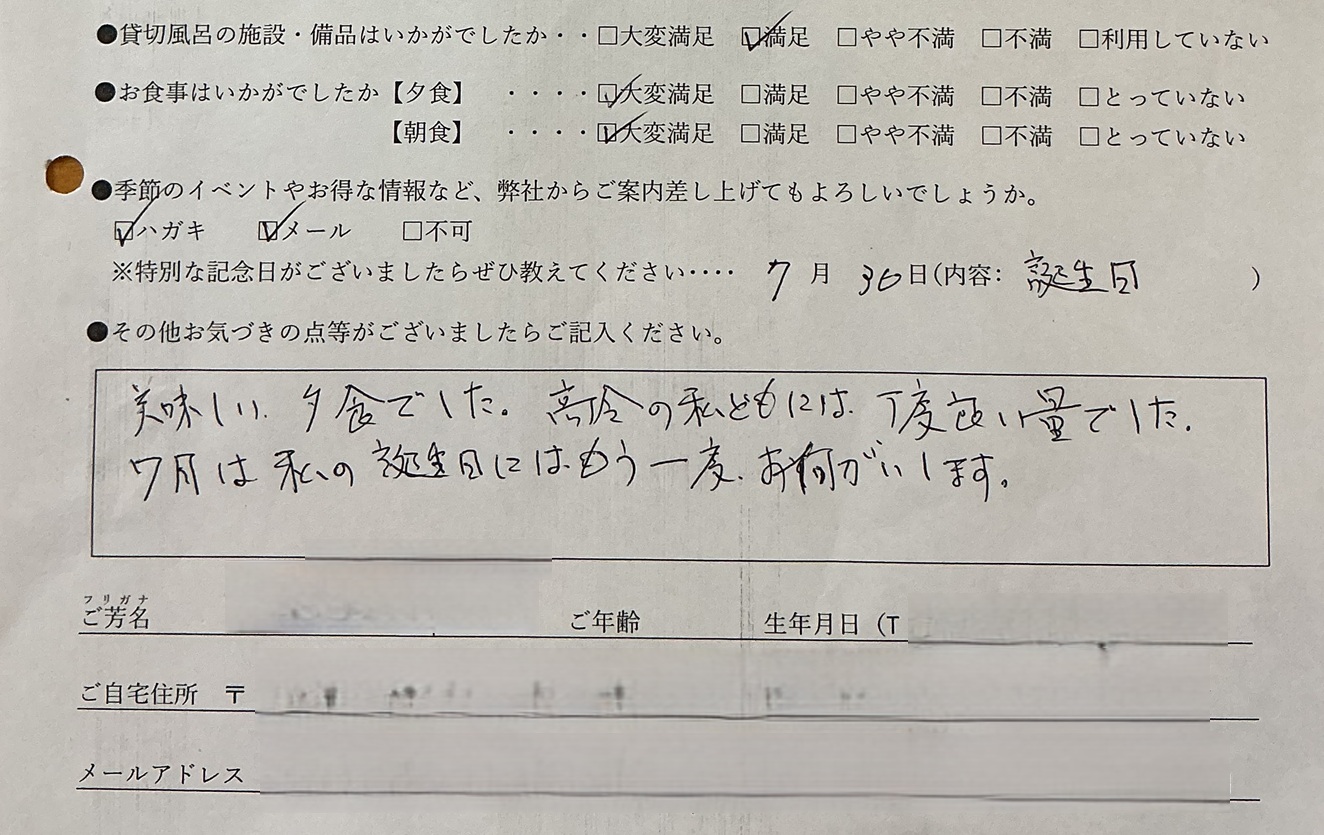 ●貸切風呂の施設・備品はいかがでしたか・・□大変満足 ☑満足 □やや不満 □不満 □利用していない
●お食事はいかがでしたか【夕食】 ・・・・☑大変満足 □満足 □やや不満 □不満 □とっていない
【朝食】 ・・・・☑大変満足 □満足 □やや不満 □不満 □とっていない
●季節のイベントやお得な情報など、弊社からご案内差し上げてもよろしいでしょうか。
☑ハガキ ☑メール □不可
※特別な記念日がございましたらぜひ教えてください‥‥ 7月 30日(内容: 誕生日 )
●その他お気づきの点等がございましたらご記入ください。
美味しい、夕食でした。高令の私どもには、丁度良い量でした。
7月は私の誕生日にはもう一度、お願がいします。
フリガナ
ご芳名 ご年齢 生年月日(T
ご自宅住所 〒
メールアドレス